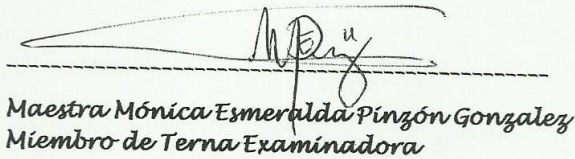 Maestra Mónica Esmeralda Pinzón Gonzalez
Miembro de Terna Examinadora